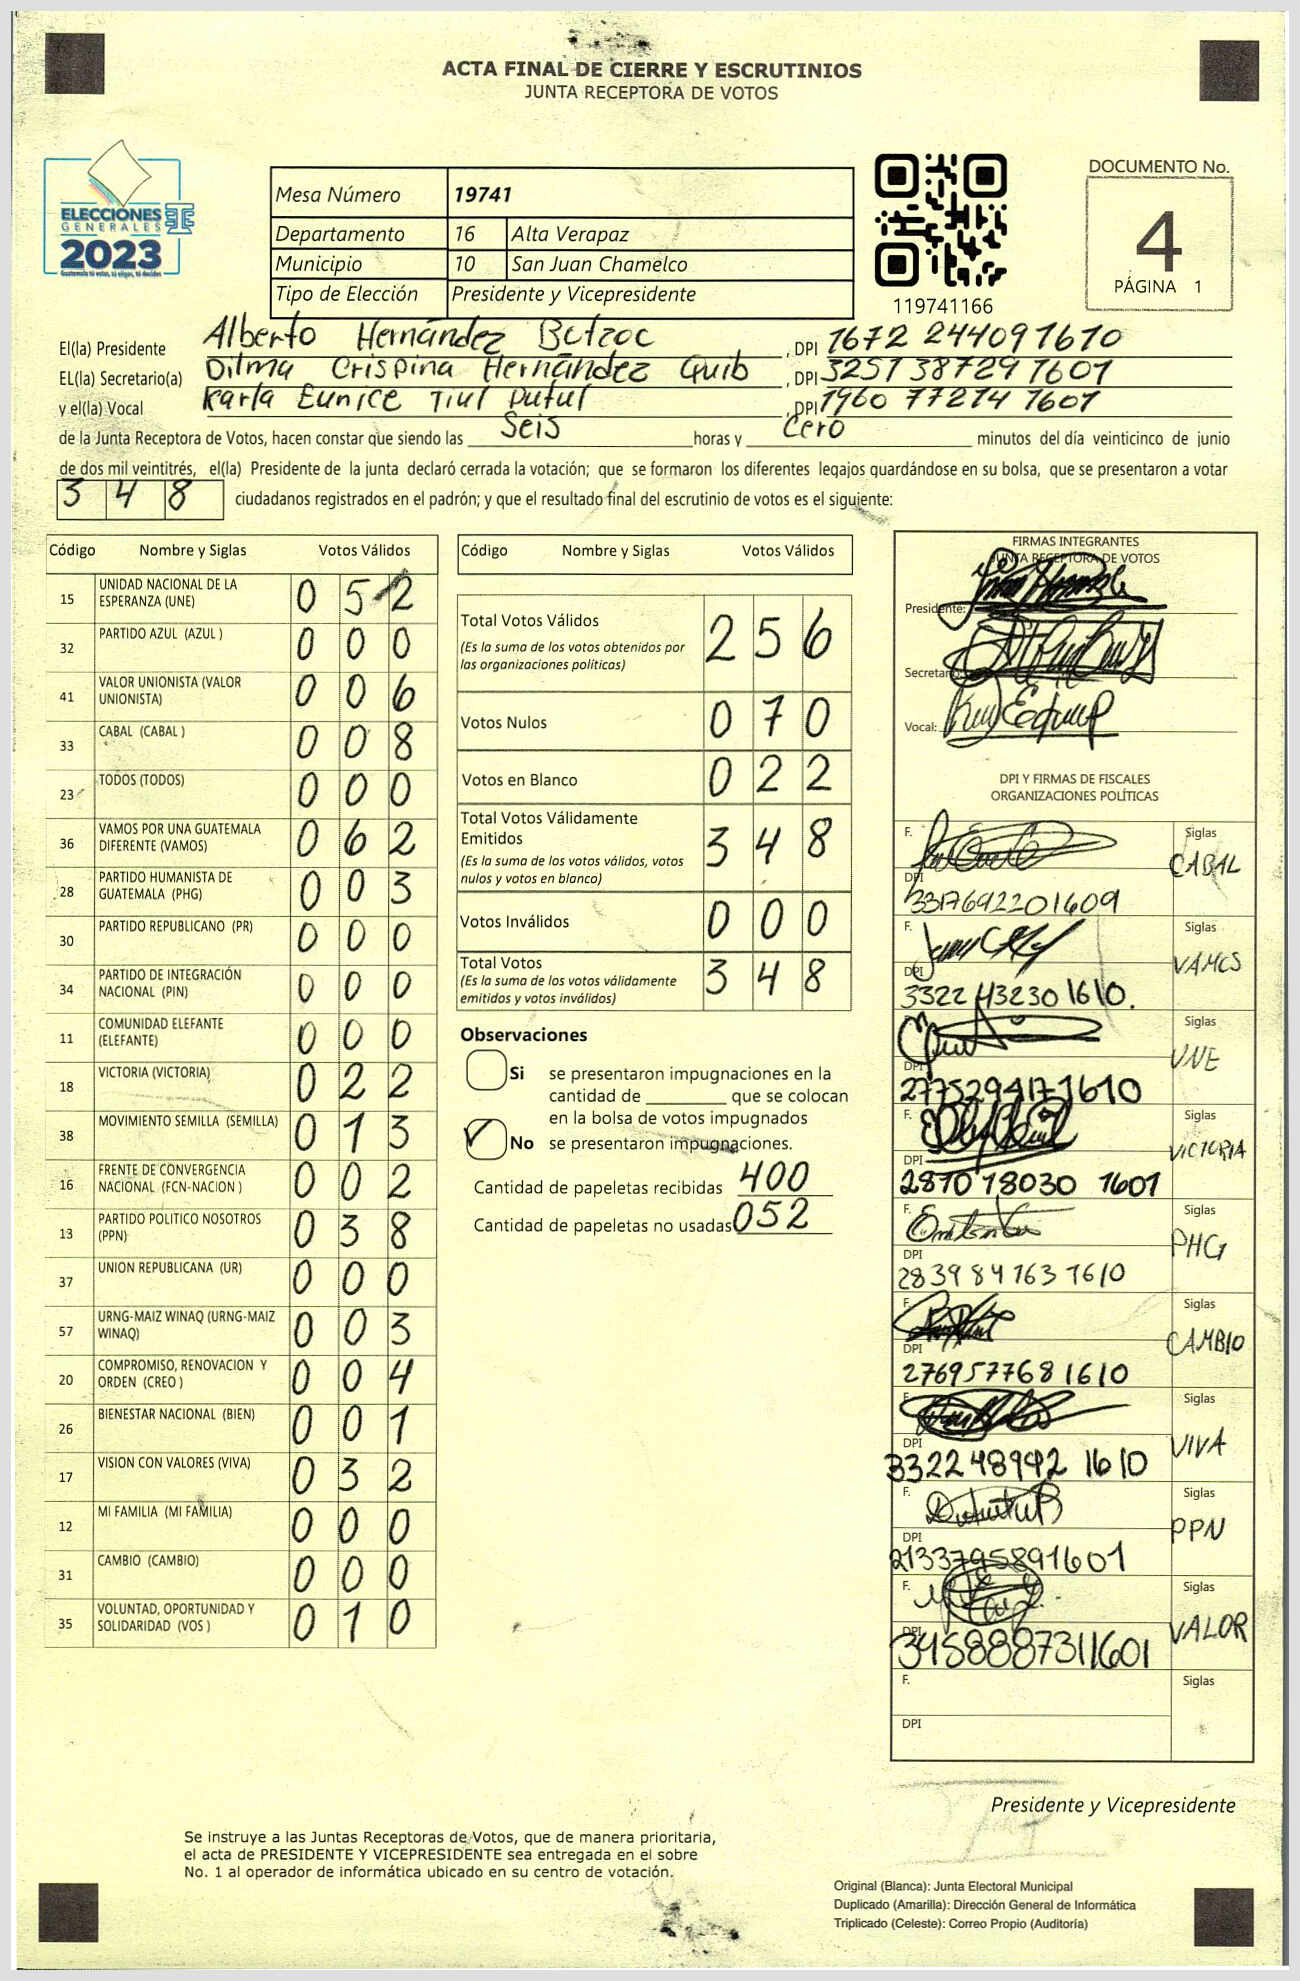 ACTA FINAL DE CIERRE Y ESCRUTINIOS
JUNTA RECEPTORA DE VOTOS
ELECCIONES
GENERALES
2023
Mesa Número 19741
Departamento 16 Alta Verapaz
Municipio 10 San Juan Chamelco
Tipo de Elección Presidente y Vicepresidente
119741166
DOCUMENTO No.
4
PÁGINA 1
El(la) Presidente Alberto Hernández Butzoc, DPI 1672 24409 1610
EL(la) Secretario(a) Dilma Crispina Hernández Quib, DPI 3251 38729 1601
y el(la) Vocal Karla Eunice Tiul Putul, DPI 1960 77214 1601
de la Junta Receptora de Votos, hacen constar que siendo las Seis horas y Cero minutos del día veinticinco de junio
de dos mil veintitrés, el(la) Presidente de la junta declaró cerrada la votación; que se formaron los diferentes legajos quardándose en su bolsa, que se presentaron a votar
348 ciudadanos registrados en el padrón; y que el resultado final del escrutinio de votos es el siguiente:
Código Nombre y Siglas Votos Válidos
15 UNIDAD NACIONAL DE LA ESPERANZA (UNE) 0 5 2
32 PARTIDO AZUL (AZUL ) 0 0 0
41 VALOR UNIONISTA (VALOR UNIONISTA) 0 0 6
33 CABAL (CABAL ) 0 0 8
23 TODOS (TODOS) 0 0 0
36 VAMOS POR UNA GUATEMALA DIFERENTE (VAMOS) 0 6 2
28 PARTIDO HUMANISTA DE GUATEMALA (PHG) 0 0 3
30 PARTIDO REPUBLICANO (PR) 0 0 0
34 PARTIDO DE INTEGRACIÓN NACIONAL (PIN) 0 0 0
11 COMUNIDAD ELEFANTE (ELEFANTE) 0 0 0
18 VICTORIA (VICTORIA) 0 2 2
38 MOVIMIENTO SEMILLA (SEMILLA) 0 1 3
16 FRENTE DE CONVERGENCIA NACIONAL (FCN-NACION ) 0 0 2
13 PARTIDO POLITICO NOSOTROS (PPN) 0 3 8
37 UNION REPUBLICANA (UR) 0 0 0
57 URNG-MAIZ WINAQ (URNG-MAIZ WINAQ) 0 0 3
20 COMPROMISO, RENOVACION Y ORDEN (CREO ) 0 0 4
26 BIENESTAR NACIONAL (BIEN) 0 0 1
17 VISION CON VALORES (VIVA) 0 3 2
12 MI FAMILIA (MI FAMILIA) 0 0 0
31 CAMBIO (CAMBIO) 0 0 0
35 VOLUNTAD, OPORTUNIDAD Y SOLIDARIDAD (VOS ) 0 1 0
Código Nombre y Siglas Votos Válidos
Total Votos Válidos 2 5 6
(Es la suma de los votos obtenidos por
las organizaciones políticas)
Votos Nulos 0 7 0
Votos en Blanco 0 2 2
Total Votos Válidamente
Emitidos 3 4 8
(Es la suma de los votos válidos, votos
nulos y votos en blanco)
Votos Inválidos 0 0 0
Total Votos 3 4 8
(Es la suma de los votos válidamente
emitidos y votos inválidos)
Observaciones
Si se presentaron impugnaciones en la
cantidad de ________ que se colocan
en la bolsa de votos impugnados
No se presentaron impugnaciones.
Cantidad de papeletas recibidas 400
Cantidad de papeletas no usadas 052
FIRMAS INTEGRANTES
JUNTA RECEPTORA DE VOTOS
Presidente:
Secretario:
Vocal:
DPI Y FIRMAS DE FISCALES
ORGANIZACIONES POLÍTICAS
F. Siglas CABAL
DPI 3317692201609
F. Siglas VAMOS
DPI 3322 43230 1610.
F. Siglas UNE
DPI 2775294171610
F. Siglas VICTORIA
DPI 2870 18030 1601
F. Siglas PHG
DPI 2839 84763 1610
F. Siglas CAMBIO
DPI 2769577681610
F. Siglas VIVA
DPI 3322 48942 1610
F. Siglas PPN
DPI 2133795891601
F. Siglas VALOR
DPI 3458887311601
F. Siglas
DPI
Presidente y Vicepresidente
Se instruye a las Juntas Receptoras de Votos, que de manera prioritaria,
el acta de PRESIDENTE Y VICEPRESIDENTE sea entregada en el sobre
No. 1 al operador de informática ubicado en su centro de votación.
Original (Blanca): Junta Electoral Municipal
Duplicado (Amarilla): Dirección General de Informática
Triplicado (Celeste): Correo Propio (Auditoría)